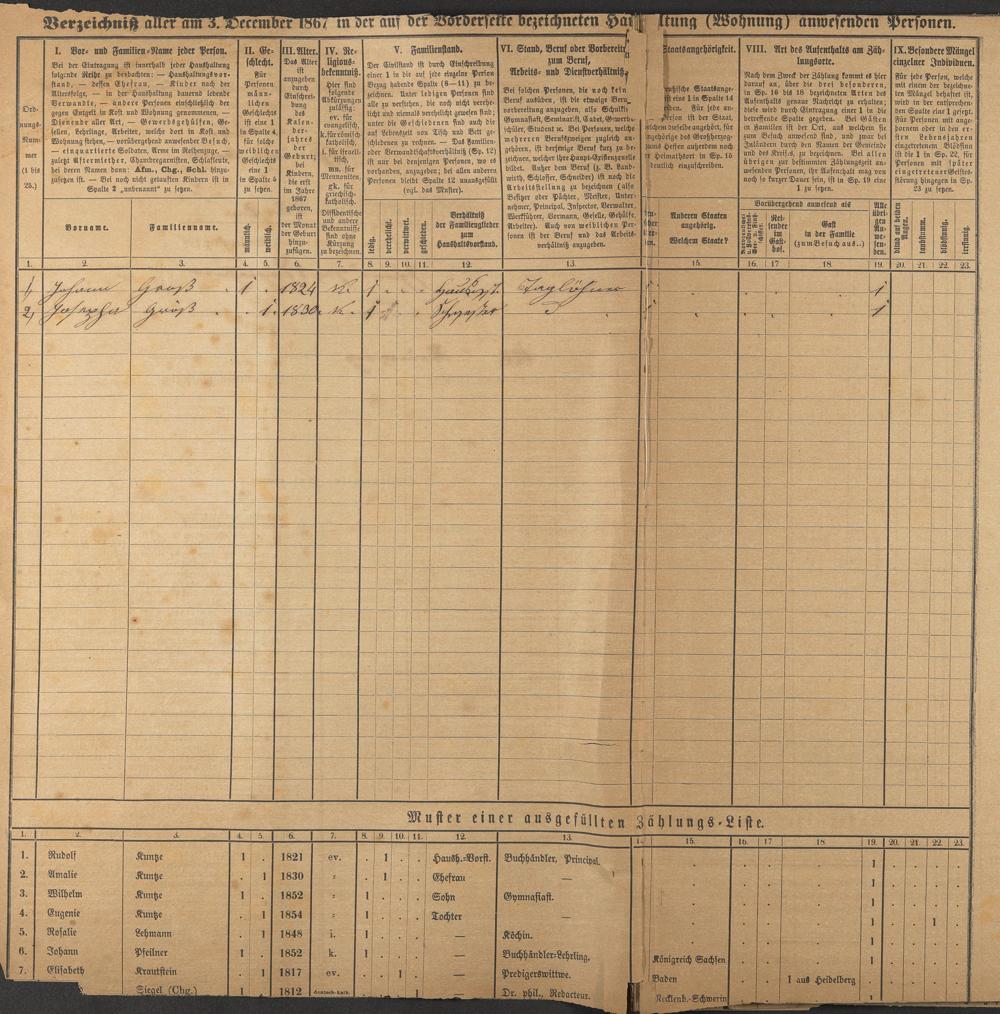 Verzeichniß aller am 3. December 1867 in der auf der Vorderseite bezeichneten Hau ltung (Wohnung) anwesenden Personen.
Ord-
nungs-
Num-
mer
(1 bis
25.)
I. Vor- und Familien-Name jeder Person.
Bei der Eintragung ist innerhalb jeder Haushaltung
folgende Reihe zu beobachten: — Haushaltungsvor-
stand, — dessen Ehefrau, — Kinder nach der
Altersfolge, — in der Haushaltung dauernd lebende
Verwandte, — andere Personen einschließlich der
gegen Entgelt in Kost und Wohnung genommenen, —
Dienende aller Art, — Gewerbsgehülfen, Ge-
sellen, Lehrlinge, Arbeiter, welche dort in Kost und
Wohnung stehen, — vorübergehend anwesender Besuch,
— einquartierte Soldaten, Arme im Reihenzuge, —
zuletzt Aftermiether, Chambregarnisten, Schlafleute,
bei deren Namen dann: Afm., Chg., Schl. hinzu-
zusetzen ist. — Bei noch nicht getauften Kindern ist in
Spalte 2 „unbenannt“ zu setzen.
Vorname. Familienname.
II. Ge-
schlecht.
Für
Personen
män-
lichen
Geschlechts
ist eine 1
in Spalte 4,
für
weiblichen
Geschlechts
eine 1
in Spalte 5
zu setzen.
männlich. weiblich.
III. Alter.
Das Alter
ist
anzugeben
durch
Einschrei-
bung
des
Kalen-
der-
jahres
der
Geburt;
bei
Kindern,
die erst
im Jahre
1867
geboren,
ist
der Monat
der Geburt
hinzu-
zufügen.
IV. Re-
ligions-
bekenntniß.
Hier sind
folgende
Abkürzungen
zulässig:
ev. für
evangelisch,
k. für römisch-
katholisch,
i. für israeli-
tisch,
mn. für
Mennoniten,
gk. für
griechisch-
katholisch.
Dissidentische
und andere
Bekenntnisse
sind ohne
Kürzung
zu bezeichnen.
V. Familienstand.
Der Civilstand ist durch Einschreibung
einer 1 in die auf jede einzelne Person
Bezug habende Spalte (8—11) zu be-
zeichnen. Unter ledigen Personen sind
alle zu verstehen, die noch nicht verehe-
licht und niemals verehelicht gewesen sind;
unter die Geschiedenen sind auch die
auf Lebenszeit von Tisch und Bett ge-
schiedenen zu rechnen. — Das Familien-
oder Verwandtschaftsverhältniß (Sp. 12)
ist nur bei denjenigen Personen, wo es
vorhanden, anzugeben; bei allen anderen
Personen bleibt Spalte 12 unausgefüllt
(vgl. das Muster).
ledig. verehelicht. verwittwet. geschieden.
Verhältniß
der Familienglieder
zum
Haushaltsvorstand.
VI. Stand, Beruf oder Vorbereit
zum Beruf,
Arbeits- und Dienstverhältniß.
Bei solchen Personen, die noch kein
Beruf ausüben, ist die etwaige Beru
vorbereitung anzugeben, als Schulkin
Gymnasiast, Seminarist, Cadet, Gewerb-
schüler, Student rc. Bei Personen, welche
mehreren Berufszweigen zugleich an-
gehören, ist derjenige Beruf kurz zu be-
zeichnen, welcher ihre Haupt-Existenzquelle
bildet. Außer dem Beruf (z. B. Land-
wirth, Schlosser, Schneider) ist noch die
Arbeitsstellung zu bezeichnen (also
Besitzer oder Pächter, Meister, Unter-
nehmer, Principal, Inspector, Verwalter,
Werkführer, Vormann, Geselle, Gehülfe,
Arbeiter). Auch von weiblichen Per-
sonen ist der Beruf und das Arbeits-
verhältniß anzugeben.
Staatsangehörigkeit.
Anderen Staaten
angehörig.
Welchem Staate?
VIII. Art des Aufenthalts am Zäh-
lungsorte.
Nach dem Zwecke der Zählung kommt es hier
darauf an, über die drei besonderen,
in Sp. 16 bis 18 bezeichneten Arten des
Aufenthalts genaue Nachricht zu erhalten;
diese wird durch Eintragung einer 1 in die
betreffende Spalte gegeben. Bei Gästen
in Familien ist der Ort, aus welchem sie
zum Besuch anwesend sind, und zwar bei
Inländern durch den Namen der Gemeinde
und des Kreises, zu bezeichnen. Bei allen
übrigen zur bestimmten Zählungszeit an-
wesenden Personen, ihr Aufenthalt mag von
noch so kurzer Dauer sein, ist in Sp. 19 eine
1 zu setzen.
Vorübergehend anwesend als
Rei-
sender
im
Gast-
hof.
Gast
in der Familie
(zum Besuch aus..)
Alle
übri-
gen
An-
wesen-
den.
IX. Besondere Mängel
einzelner Individuen.
Für jede Person, welche
mit einem der bezeichne-
ten Mängel behaftet ist,
wird in der entsprechen-
den Spalte eine 1 gesetzt.
Für Personen mit ange-
bornem oder in den er-
sten Lebensjahren
eingetretenem Blödsinn
ist die 1 in Sp. 22, für
Personen mit später
eingetretener Geistes-
störung hingegen in Sp.
23 zu setzen.
blind auf beiden Augen. taubstumm. blödsinnig. irrsinnig.
1. 2. 3. 4. 5. 6. 7. 8. 9. 10. 11. 12. 13. 15. 16. 17. 18. 19. 20. 21. 22. 23.
1, Johann Groß 1 . 1824 K. 1 . . . Taglöhner 1
2, Josepha Groß . 1 1830 K. 1 Schwester 1
Muster einer ausgefüllten Zählungs-Liste.
1. 2. 3. 4. 5. 6. 7. 8. 9. 10. 11. 12. 13. 15. 16. 17. 18 19. 20. 21. 22. 23.
1. Rudolf Kuntze 1 . 1821 ev. . 1 . . Haush.-Vorst. Buchhändler, Principal. 1
2. Amalie Kuntze . 1 1830 " . 1 . . Ehefrau — 1
3. Wilhelm Kuntze 1 . 1852 " 1 . . . Sohn Gymnasiast. 1
4. Eugenie Kuntze . 1 1854 " 1 . . . Tochter — 1 . . 1 .
5. Rosalie Lehmann . 1 1848 i. 1 . . . — Köchin. 1
6. Johann Pfeilner 1 . 1852 k. 1 . . . — Buchhändler-Lehrling. Königreich Sachsen 1
7. Elisabeth Krautstein . 1 1817 ev. . . 1 . — Predigerswittwe. Baden 1 aus Heidelberg
Siegel (Chg.) 1 . 1812 deutsch-kath. . . . 1 — Dr. phil., Redacteur. Mecklenb.-Schwerin 1